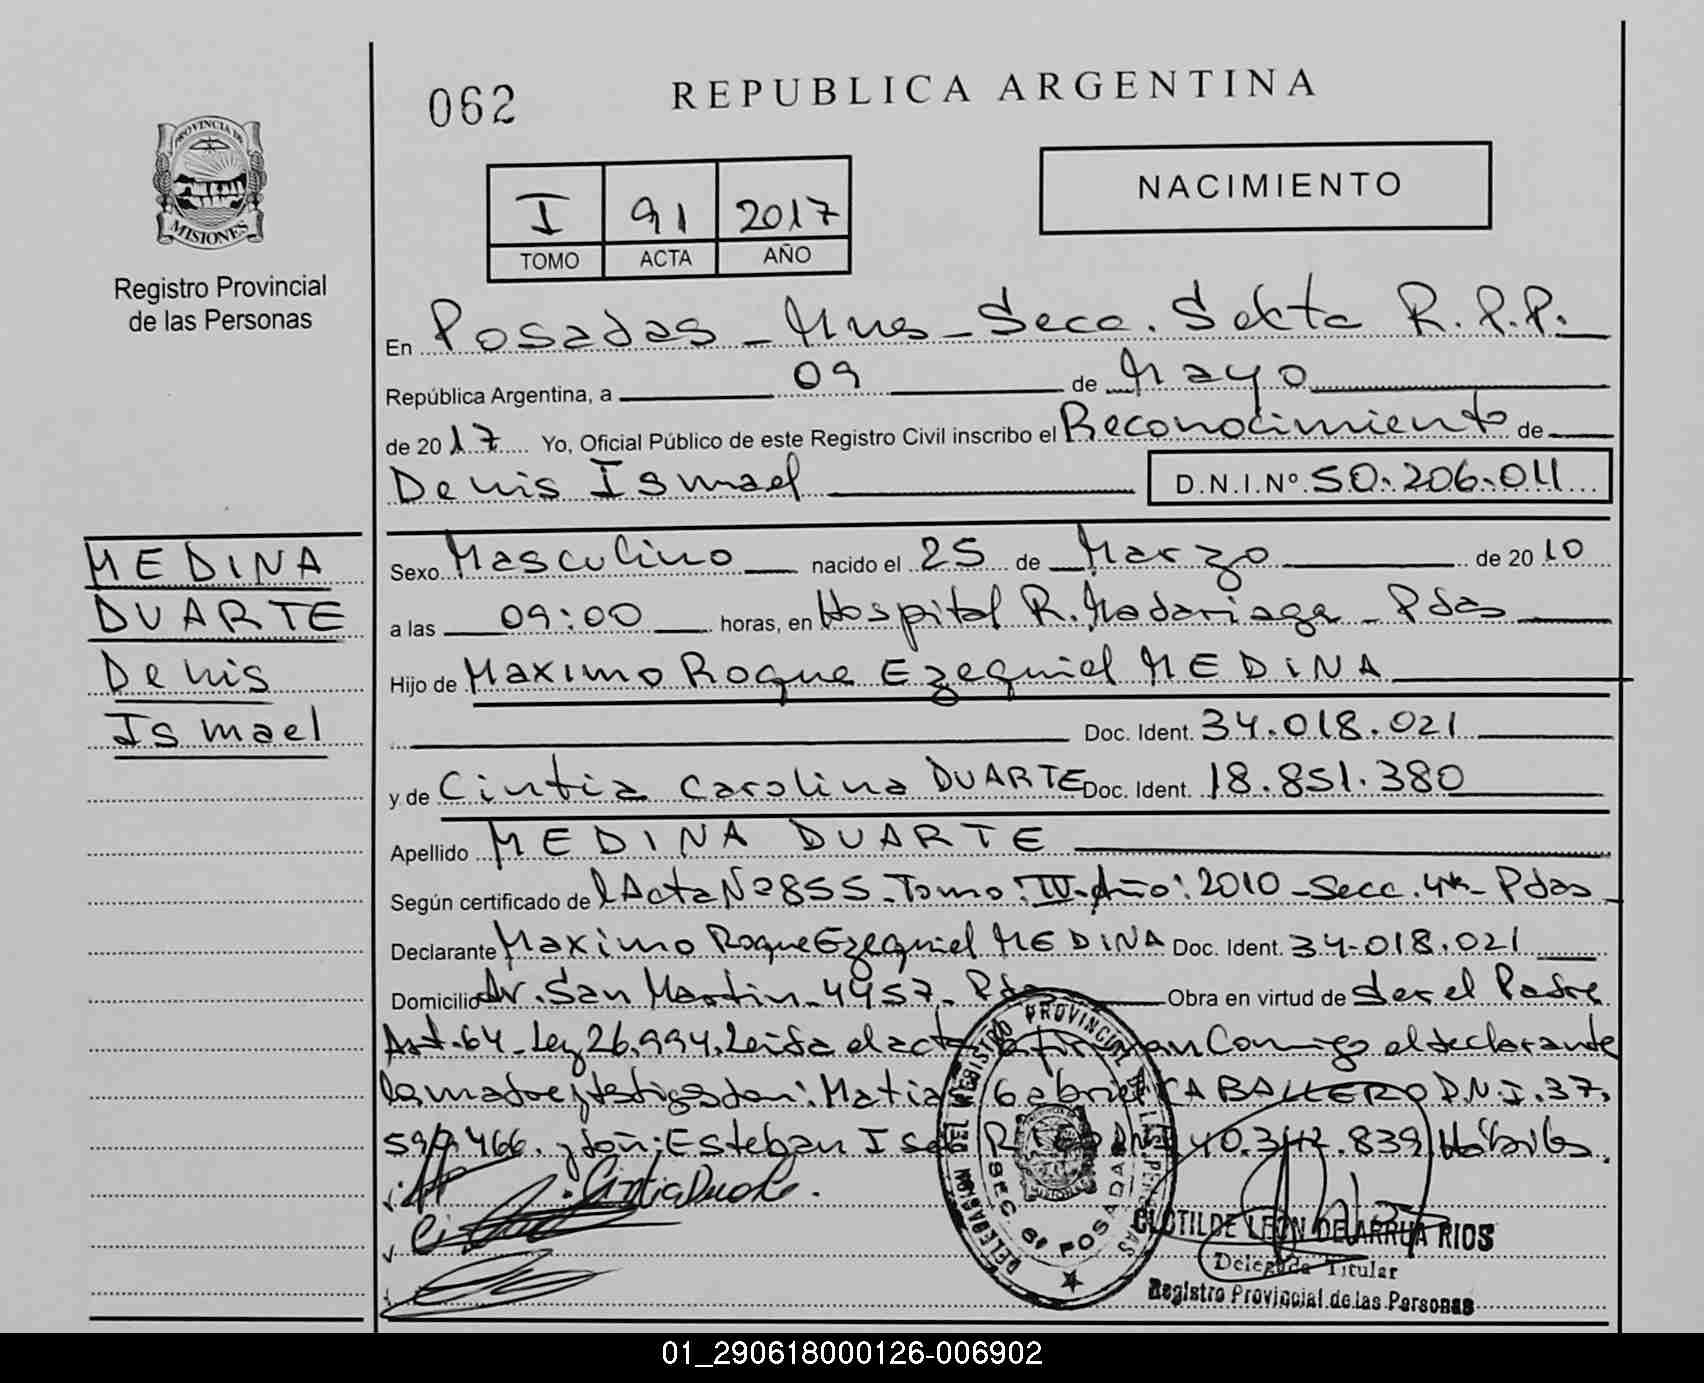 062
REPUBLICA ARGENTINA
PROVINCIA DE
MISIONES
Registro Provincial
de las Personas
NACIMIENTO
I 91 2017
TOMO ACTA AÑO
En Posadas - Mnes - Secc. Sexta R.P.P.
República Argentina, a 09 de Mayo
de 2017 Yo, Oficial Público de este Registro Civil inscribo el Reconocimiento de
Denis Ismael D.N.I.Nº 50.206.011
MEDINA
DUARTE
Denis
Ismael
Sexo Masculino nacido el 25 de Marzo de 2010
a las 09:00 horas, en Hospital R. Madariaga - Pdas
Hijo de Maximo Roque Ezequiel MEDINA
Doc. Ident. 34.018.021
y de Cintia Carolina DUARTE Doc. Ident. 18.851.380
Apellido MEDINA DUARTE
Según certificado de l Acta Nº 855 - Tomo: IV - Año: 2010 - Secc. 4ta - Pdas
Declarante Maximo Roque Ezequiel MEDINA Doc. Ident. 34.018.021
Domicilio Av. San Martin - 4457 - Pdas Obra en virtud de ser el Padre
Art. 64 - Ley 26.994. Leida el acta firman Conmigo el declarante
la madre y testigos don: Matias Gabriel CABALLERO D.N.I. 37.
599.466. y don: Esteban 40.342.839 Hábiles.
Cintia Duarte.
DELEGACION DEL REGISTRO PROVINCIAL DE LAS PERSONAS
SEC. 6ª POSADAS
CLOTILDE LEON DE ARRUA RIOS
Delegada Titular
Registro Provincial de las Personas
01_290618000126-006902